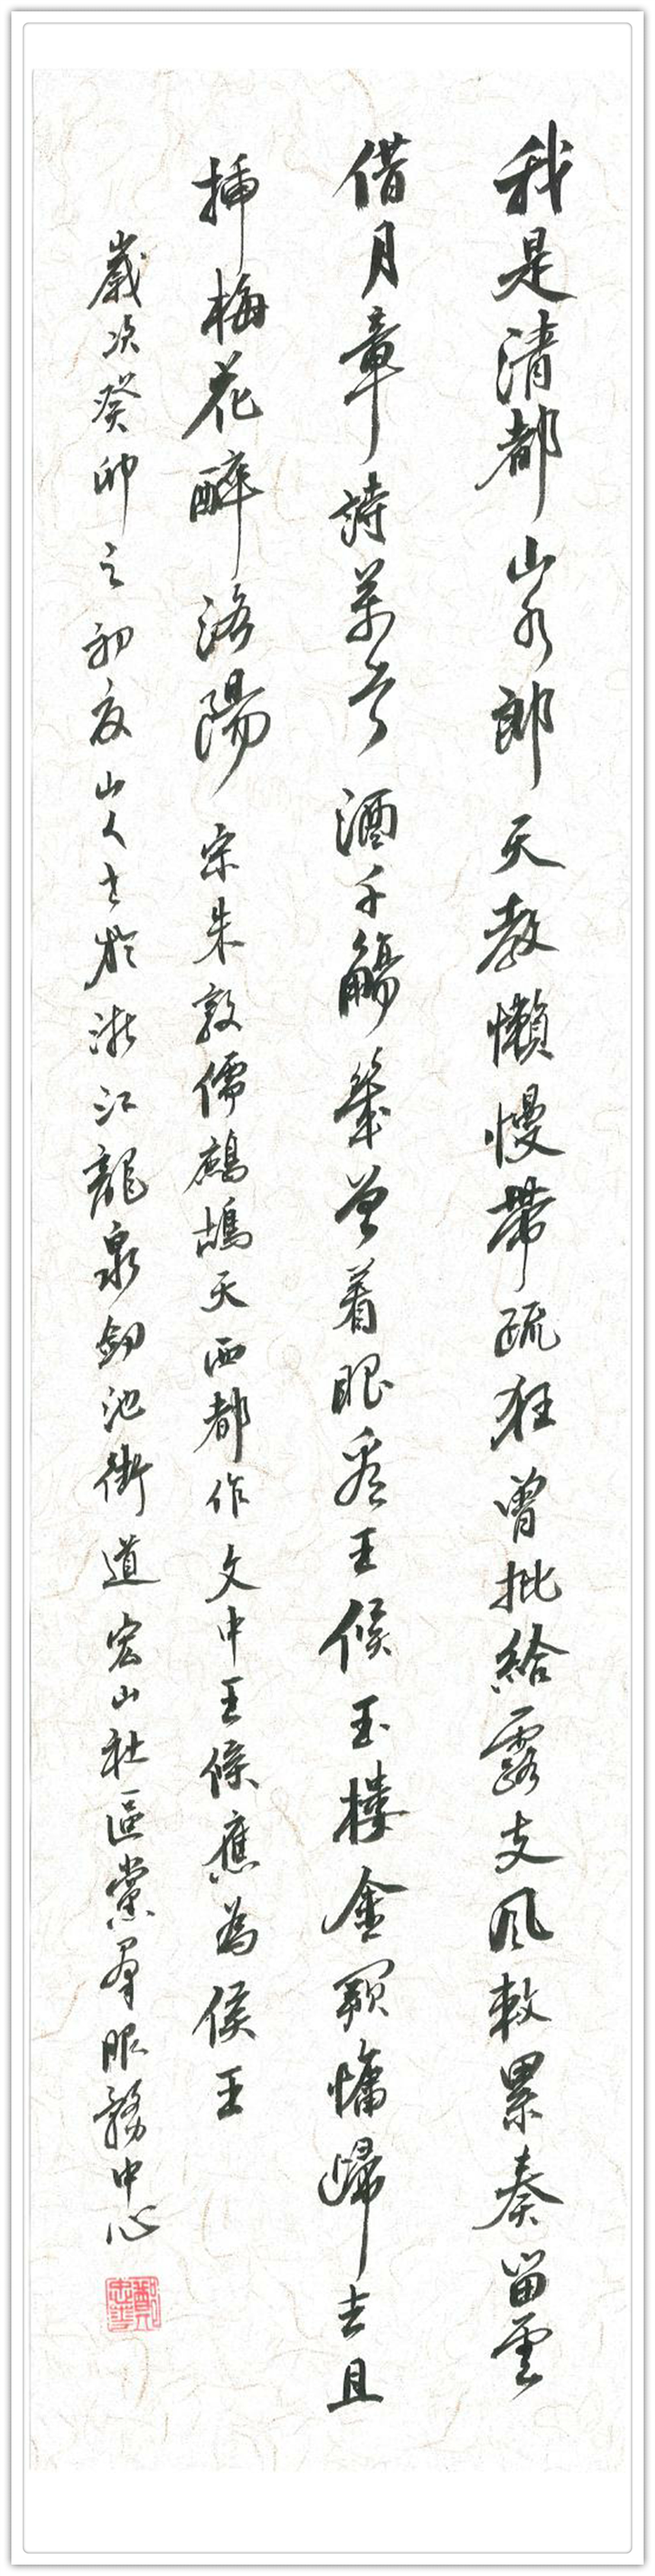 我是清都山水郎天教懶慢帶疏狂曾批給露支風敕累奏留雲
借月章詩萬首酒千觴幾曾着眼看王候玉樓金闕慵歸去且
插梅花醉洛陽 宋朱敦儒鷓鴣天西都作文中王候應為侯王
歲次癸卯之初夜山人書於浙江龍泉劍池街道宏山社區黨羣服務中心
鄭忠華